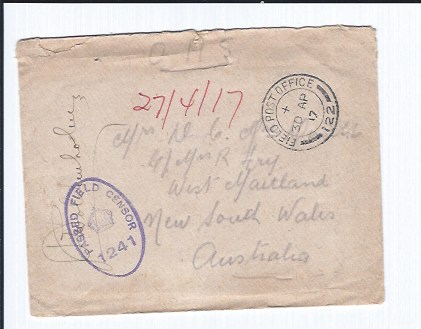 O A S
27/4/17
FIELD POST OFFICE
+
30 AP
17
122
Mrs
C/- Mrs R Fry
West Maitland
New South Wales
Australia
PASSED FIELD CENSOR
1241